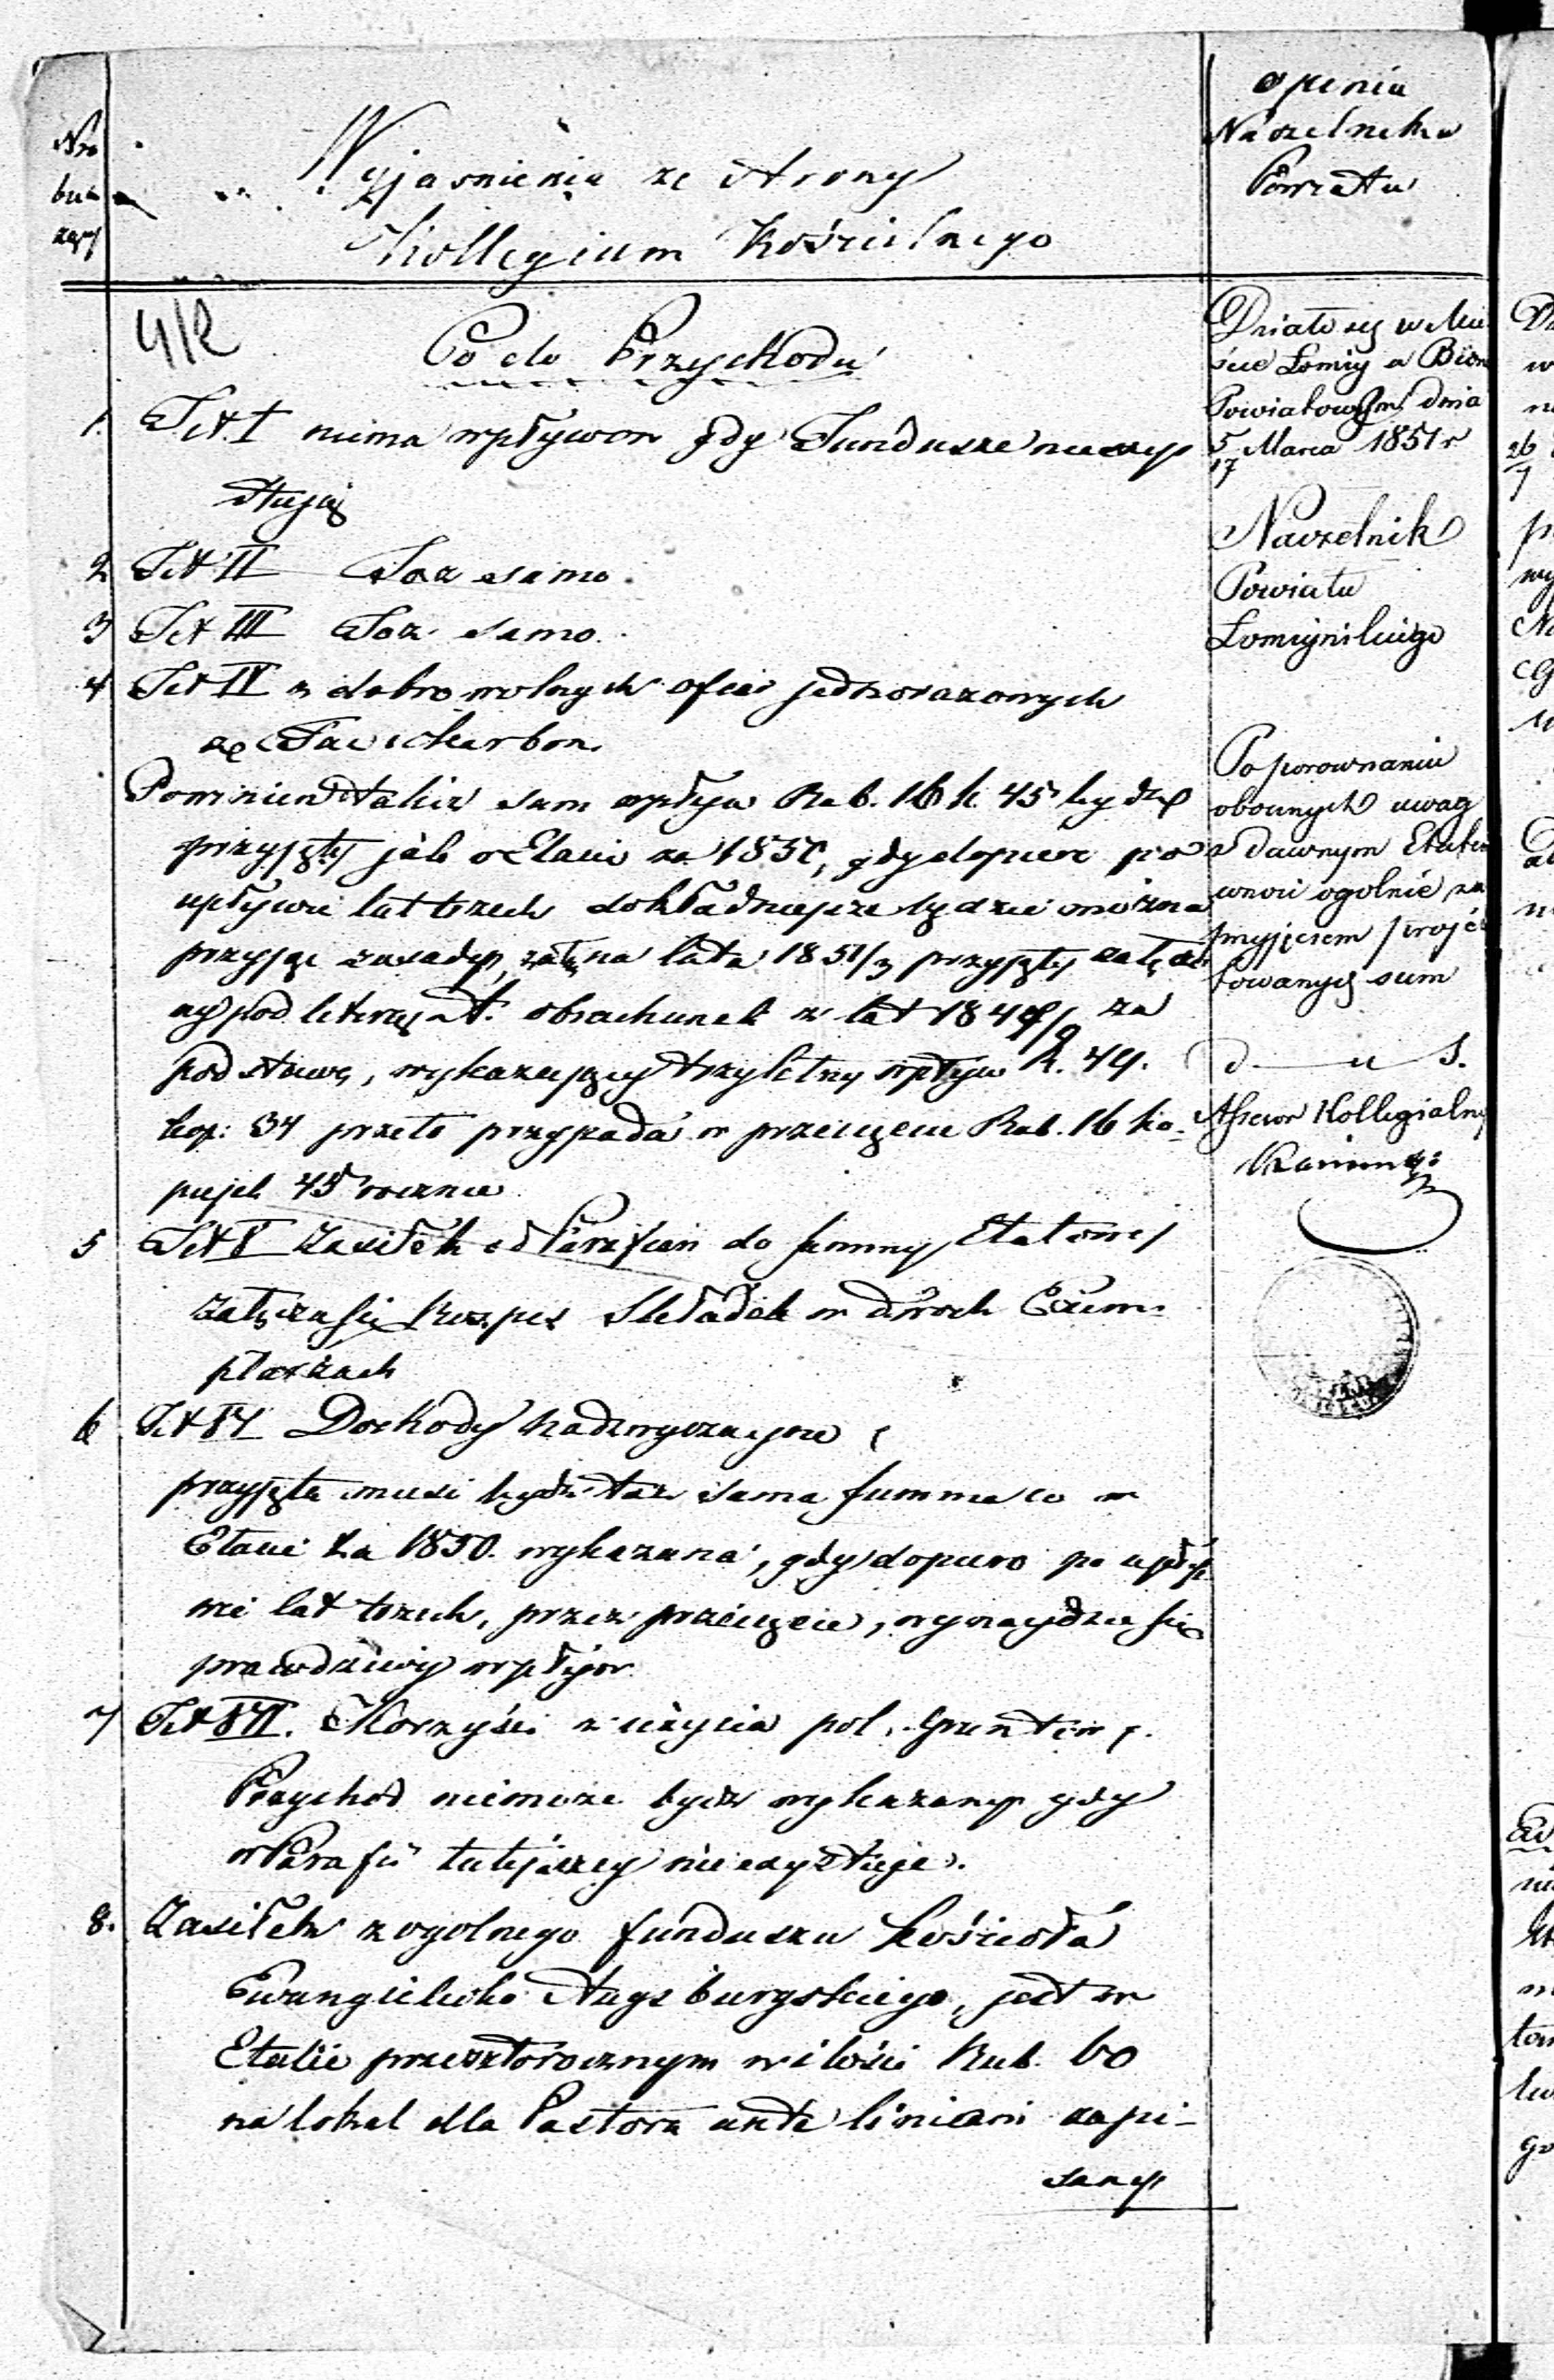 Nro
bie
żący
Wyjasnienia ze strony
Kollegium Kościelnego
opinia
Naczelnika
Powiatu
4/2
Co do Przychodu
1. Tit. I niema wpływow gdy Fundusze nieexy
stują
2 Tit II Toz samo.
3 Tit III Toz samo.
4 Tit IV z dobrowolnych ofiar jednorazowych
Powinien takiż sam wpływ Rub. 16 k. 45 bydź
przyjęty jak w Etacie za 1850, gdy dopiero po
upływie lat trzech dokładniejsze będzie można
przyjąć zasady, zatę na lata 1851/3 przyjęty załączo
ny pod literą A. obrachunek z lat 1847/9 za
podstawę, wykazujący trzyletny wpływ R. 49.
kop: 34 przeto przypada w przecięciu Rub. 16 ko-
piejek 45 rocznie
5 Tit V Zasiłek od Parafian do summy Etatowej
załącza się Rozpis Składek w dwóch Exem-
plarzach
6 Tit VI Dochody nadzwyczajne
przyjęta musi bydź taż sama summa co w
Etacie za 1850. wykazana, gdy dopiero po upły
wie lat trzech, przez przecięcie, wynajdzie się
prawdziwy wpływ
7 Tit VII. Korzyści z użycia pol, Gruntow
Przychod niemoże bydź wykazany gdy
w Parafii tutejszey nieexystuje.
8. Zasiłek z ogolnego funduszu Kościoła
Ewangielicko Augsburgskiego, jest w
Etacie przeszłorocznym w ilości Rub. 60
na lokal dla Pastora ante liniam zapi-
sany
Działo się w Mie
ście Łomży w Biór
Powiatowym dnia
5/17 Marca 1851 r
Naczelnik
Powiatu
Łomżyńskiego
Po porownaniu
obocznych uwag
z dawnym Etatem
wnosi ogolnie za
przyjęciem projek
towanych sum
Assesor Kollegialny